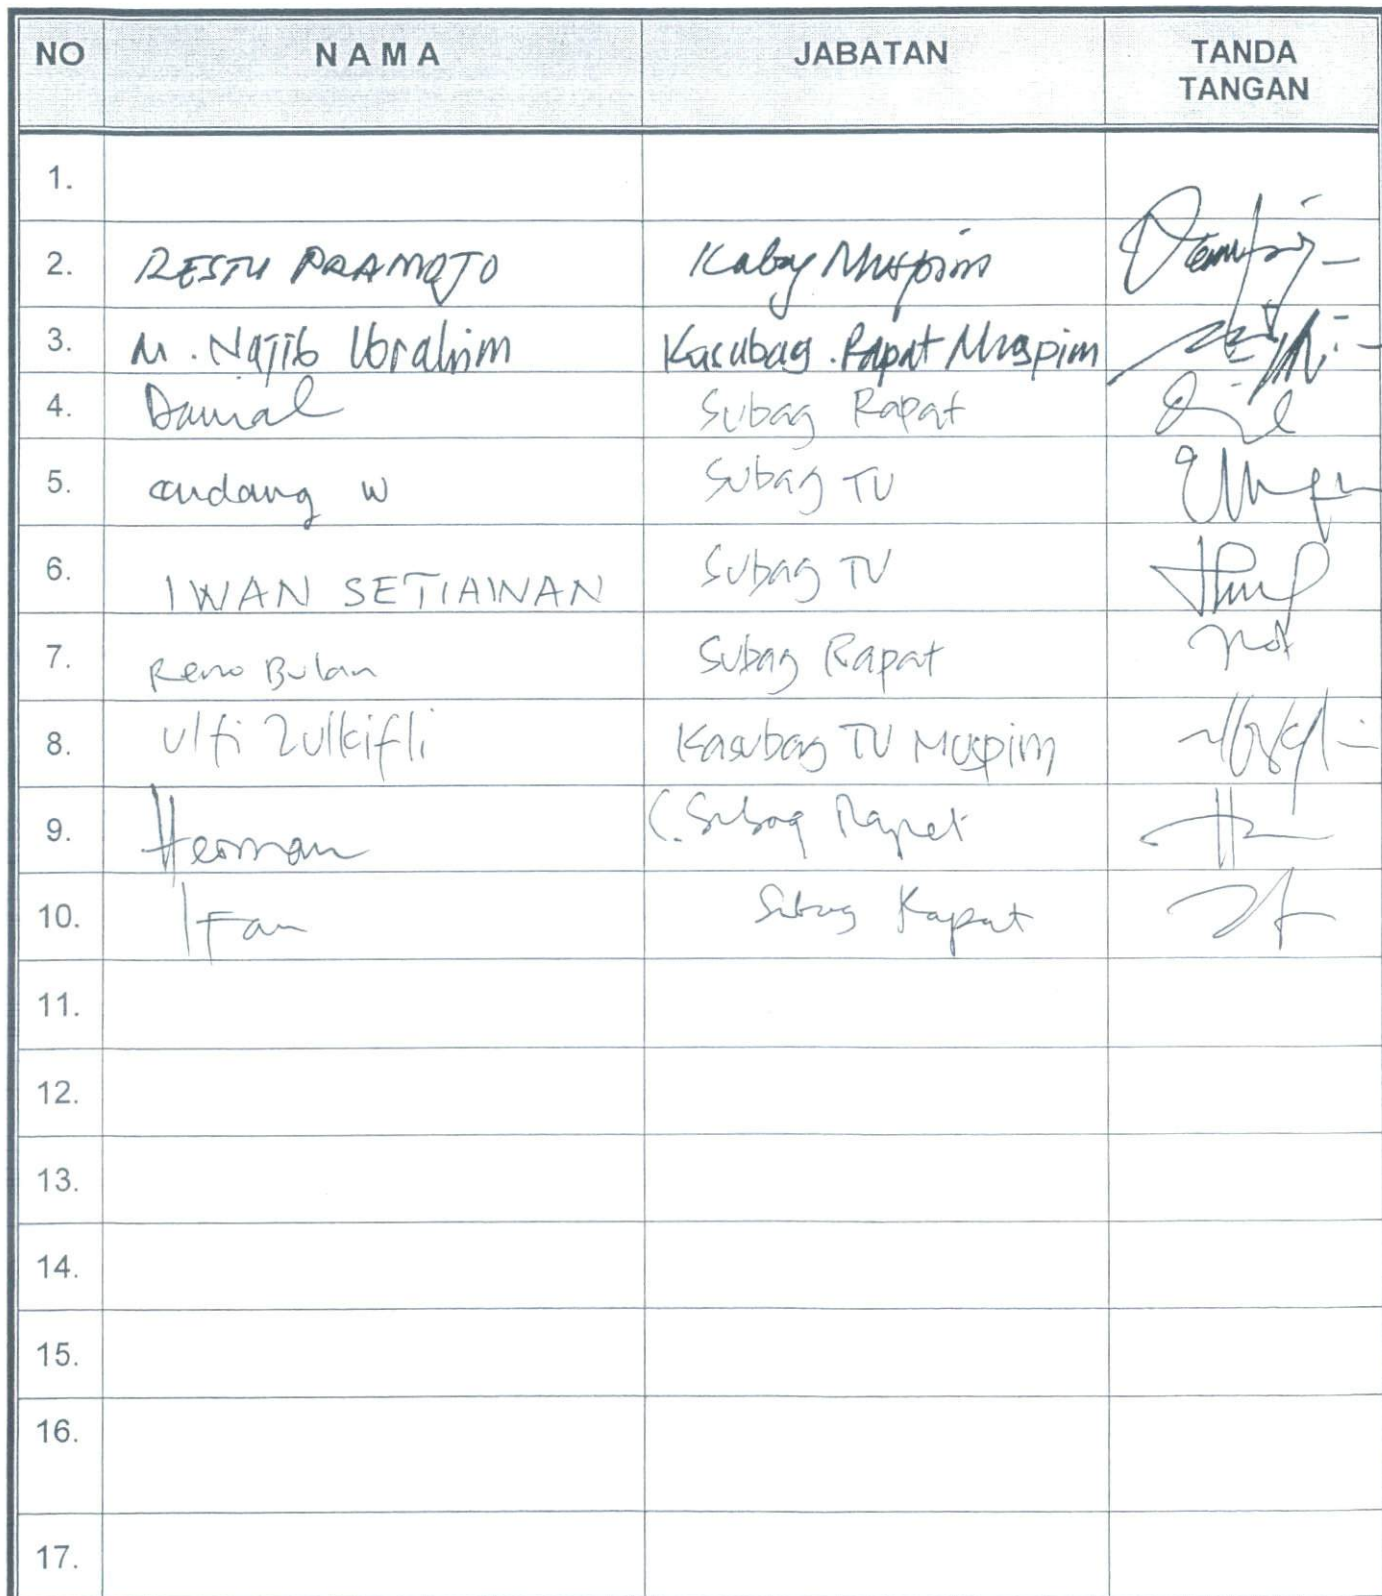 NO NAMA JABATAN TANDA
TANGAN
1.
2. RESTU PRAMOJO Kabag Muspim
3. M. Najib Ibrahim Kasubag. Rapat Muspim
4. Danial Subag Rapat
5. endang W Subag TU
6. IWAN SETIAWAN Subag TU
7. Reno Bulan Subag Rapat
8. Ulfi Zulkifli Kasubag TU Muspim
9. Herman Subag Rapat
10. Ifan Subag Rapat
11.
12.
13.
14.
15.
16.
17.